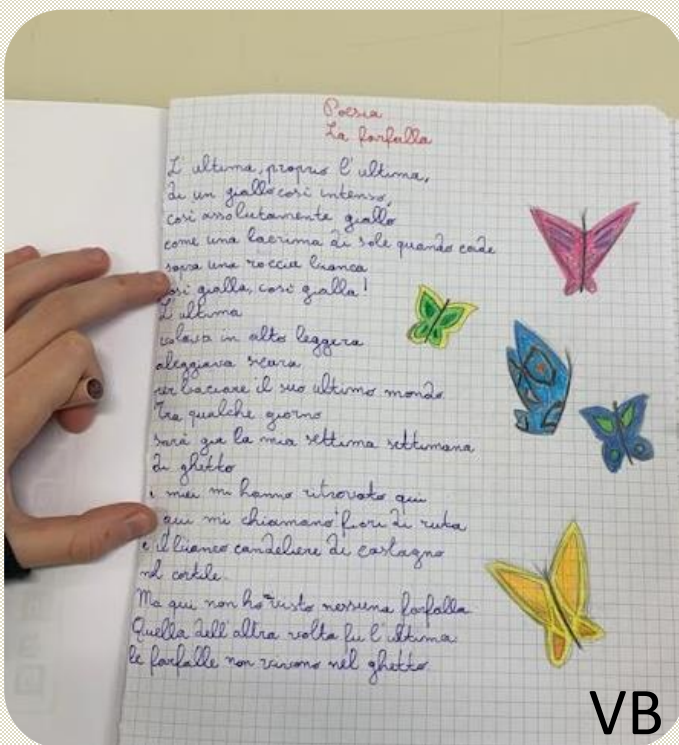 Poesia
La farfalla
L'ultima, proprio l'ultima,
di un giallo così intenso,
così assolutamente giallo
come una lacrima di sole quando cade
sopra una roccia bianca
così gialla, così gialla!
L'ultima
volava in alto leggera
aleggiava sicura
per baciare il suo ultimo mondo
Tra qualche giorno
sarà già la mia settima settimana
di ghetto
i miei mi hanno ritrovato qui
e qui mi chiamano fiori di ruta
e il bianco candeliere di castagno
nel cortile.
Ma qui non ho visto nessuna farfalla
Quella dell'altra volta fu l'ultima
le farfalle non vivono nel ghetto.
VB